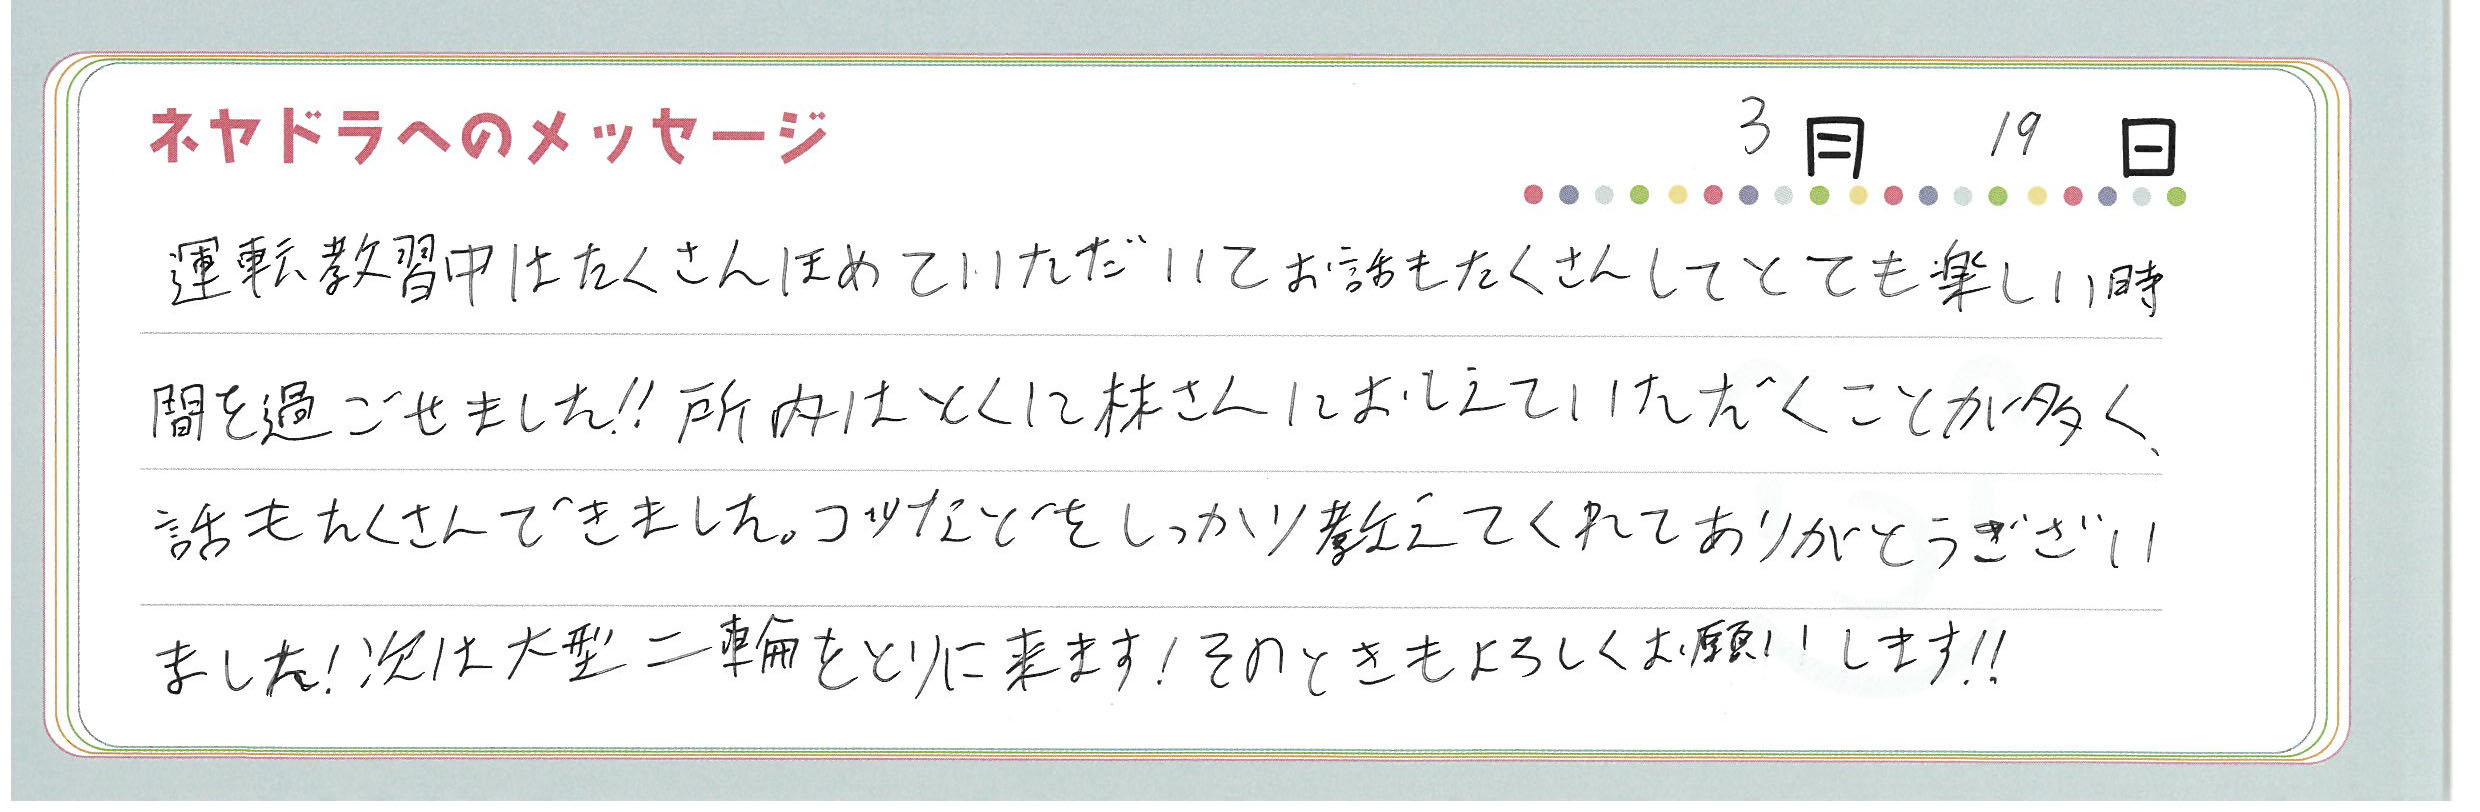 ネヤドラへのメッセージ
3月 19日
運転教習中はたくさんほめていただいてお話もたくさんしてとても楽しい時
間を過ごせました!! 所内はとくに林さんにおしえていただくことが多く、
話もたくさんできました。コツなどをしっかり教えてくれてありがとうございい
ました!次は大型二輪をとりに来ます!そのときもよろしくお願いします!!